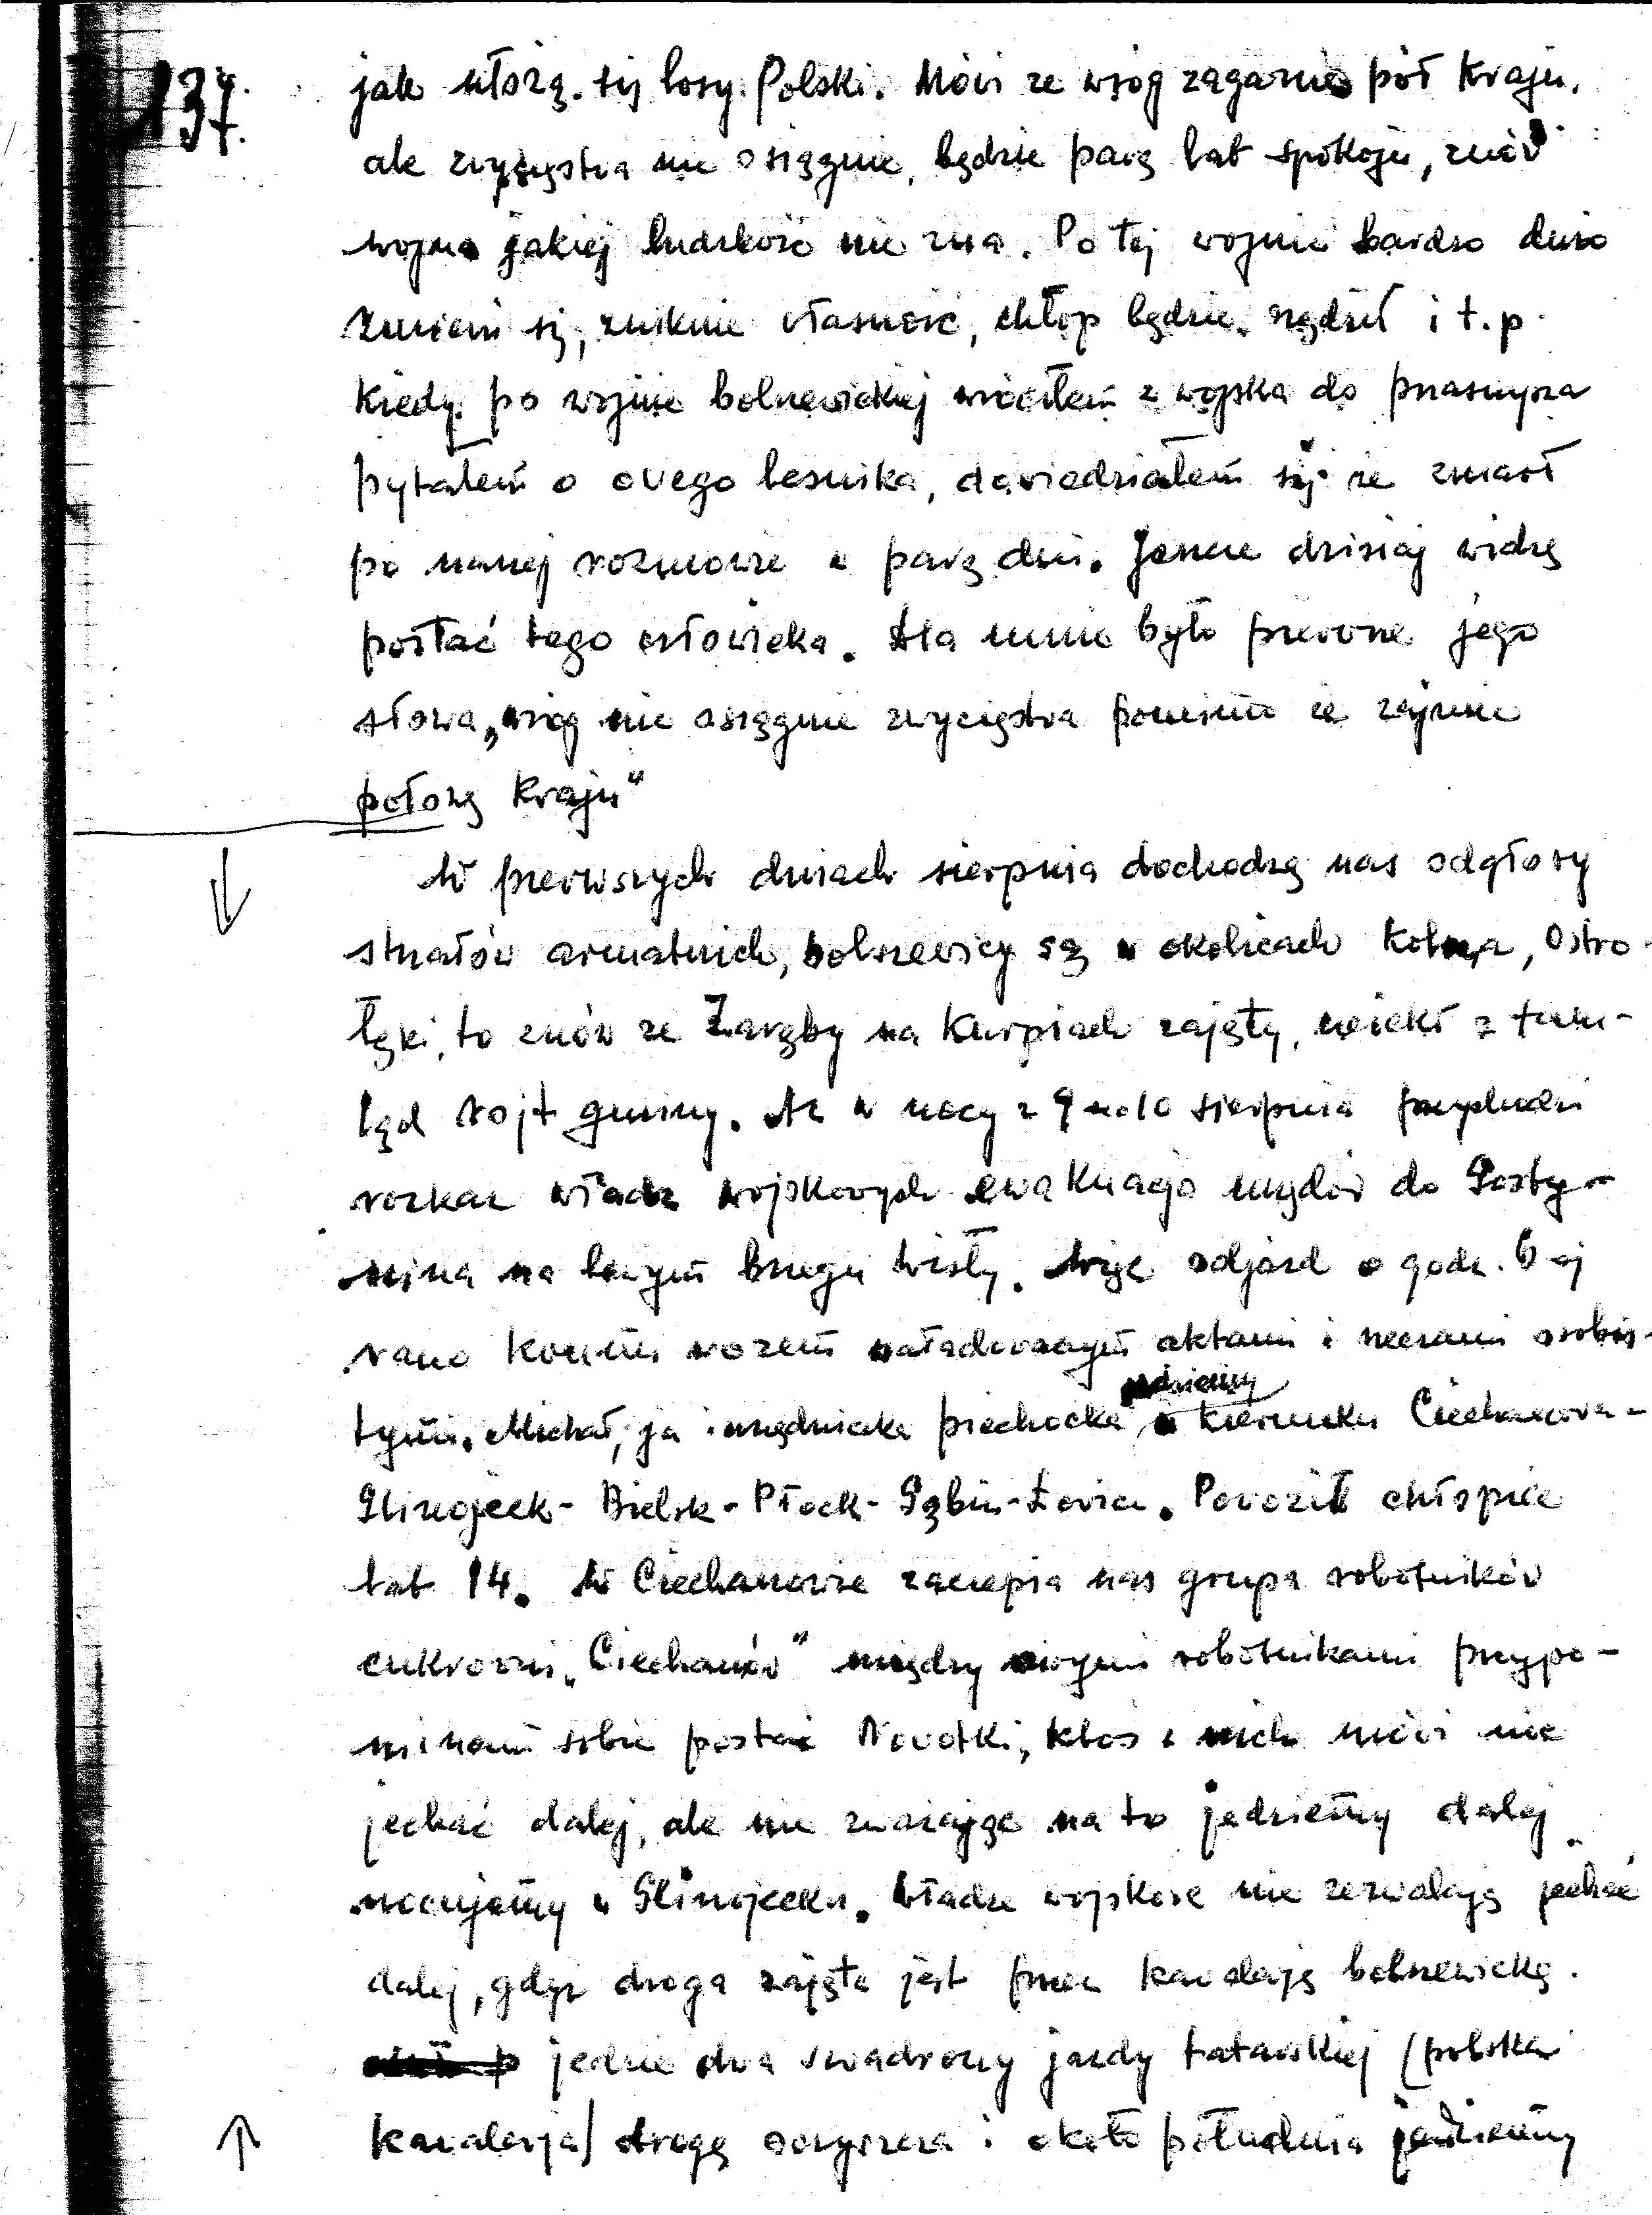 137.
jak ułożą się losy Polski. Mówi że wróg zagarnie pół kraju,
ale zwycięstwa nie osiągnie, będzie parę lat spokoju, znów
wojna jakiej ludzkość nie zna. Po tej wojnie bardzo dużo
zmieni się, zniknie własność, chłop będzie rządził i t.p.
Kiedy po wojnie bolszewickiej wróciłem z wojska do Przasnysza
pytałem o owego leśnika, dowiedziałem się że zmarł
po naszej rozmowie w parę dni. Jeszcze dzisiaj widzę
postać tego człowieka. Dla mnie było prorocze jego
słowa „wróg nie osiągnie zwycięstwa pomimo że zajmie
połowę kraju"
W pierwszych dniach sierpnia dochodzą nas odgłosy
strzałów armatnich, bolszewicy są w okolicach Kolna, Ostro-
łęki, to znów że Zaręby na Kurpiach zajęty, uciekł z tam-
tąd wójt gminy. Aż w nocy z 9 na 10 sierpnia przychodzi
rozkaz władz wojskowych ewakuacja urzędów do Gosty-
nina na lewym brzegu Wisły. Więc odjazd o godz. 6-ej
rano konnym wozem naładowanym aktami i rzeczami osobis-
tymi. Michał, ja i urzędniczka Piechocka jedziemy w kierunku Ciechanowa-
Glinojeck - Bielsk - Płock - Gąbin - Łowicz. Powoził chłopiec
lat 14. W Ciechanowie zaczepia nas grupa robotników
cukrowni „Ciechanów" między owymi robotnikami przypo-
minam sobie postać Nowotki, ktoś z nich mówi nie
jechać dalej, ale nie zważając na to jedziemy dalej
nocujemy w Glinojecku. Władze wojskowe nie zezwalają jechać
dalej, gdyż droga zajęta jest przez kawalerję bolszewicką.
jedzie dwa szwadrony jazdy tatarskiej (polska
kawalerja) drogę oczyszcza i około południa jedziemy